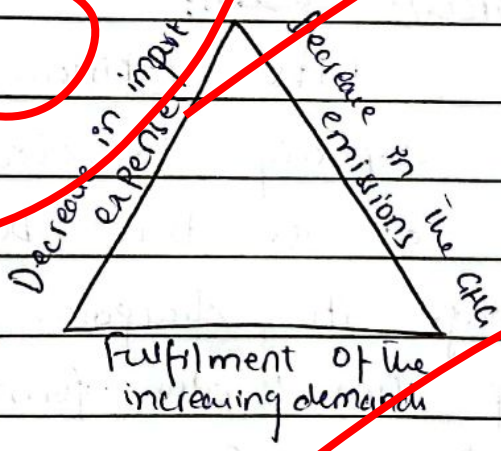 Decrease in import
expense
Decrease in the GHG
emissions
Fulfilment of the
increasing demands